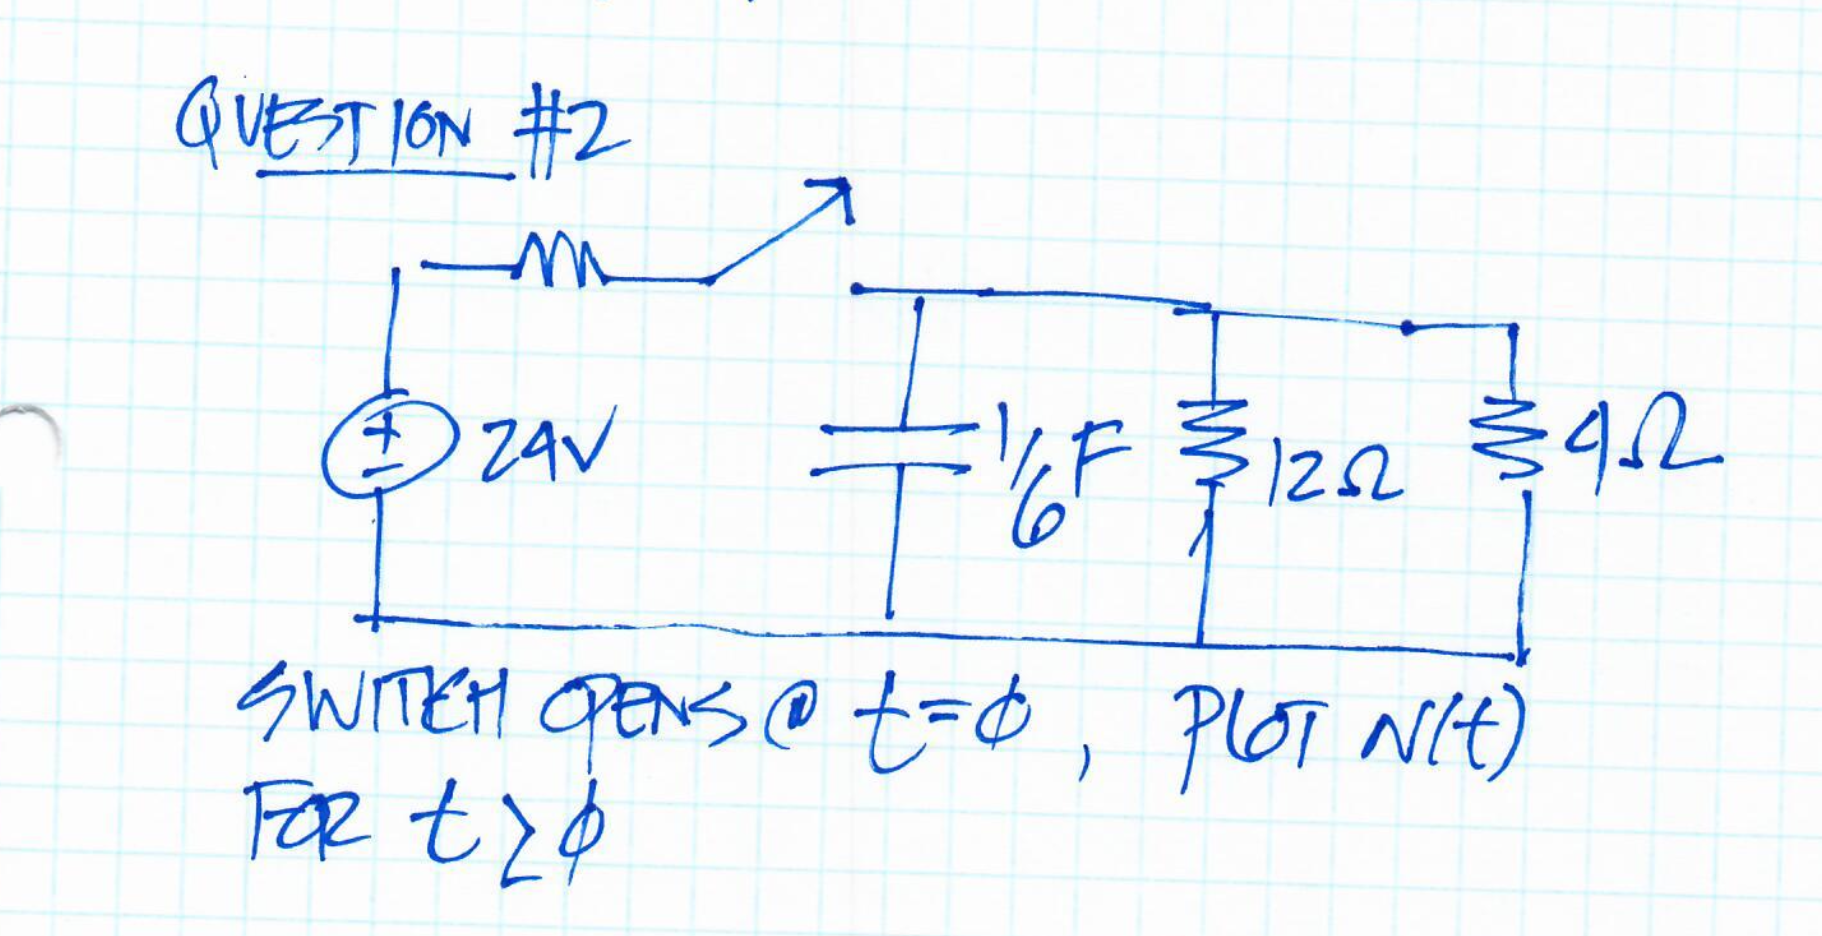 QUESTION #2
24V
1/6F
12Ω
4Ω
SWITCH OPENS @ t=ϕ, PLOT v(t)
FOR t ≥ ϕ